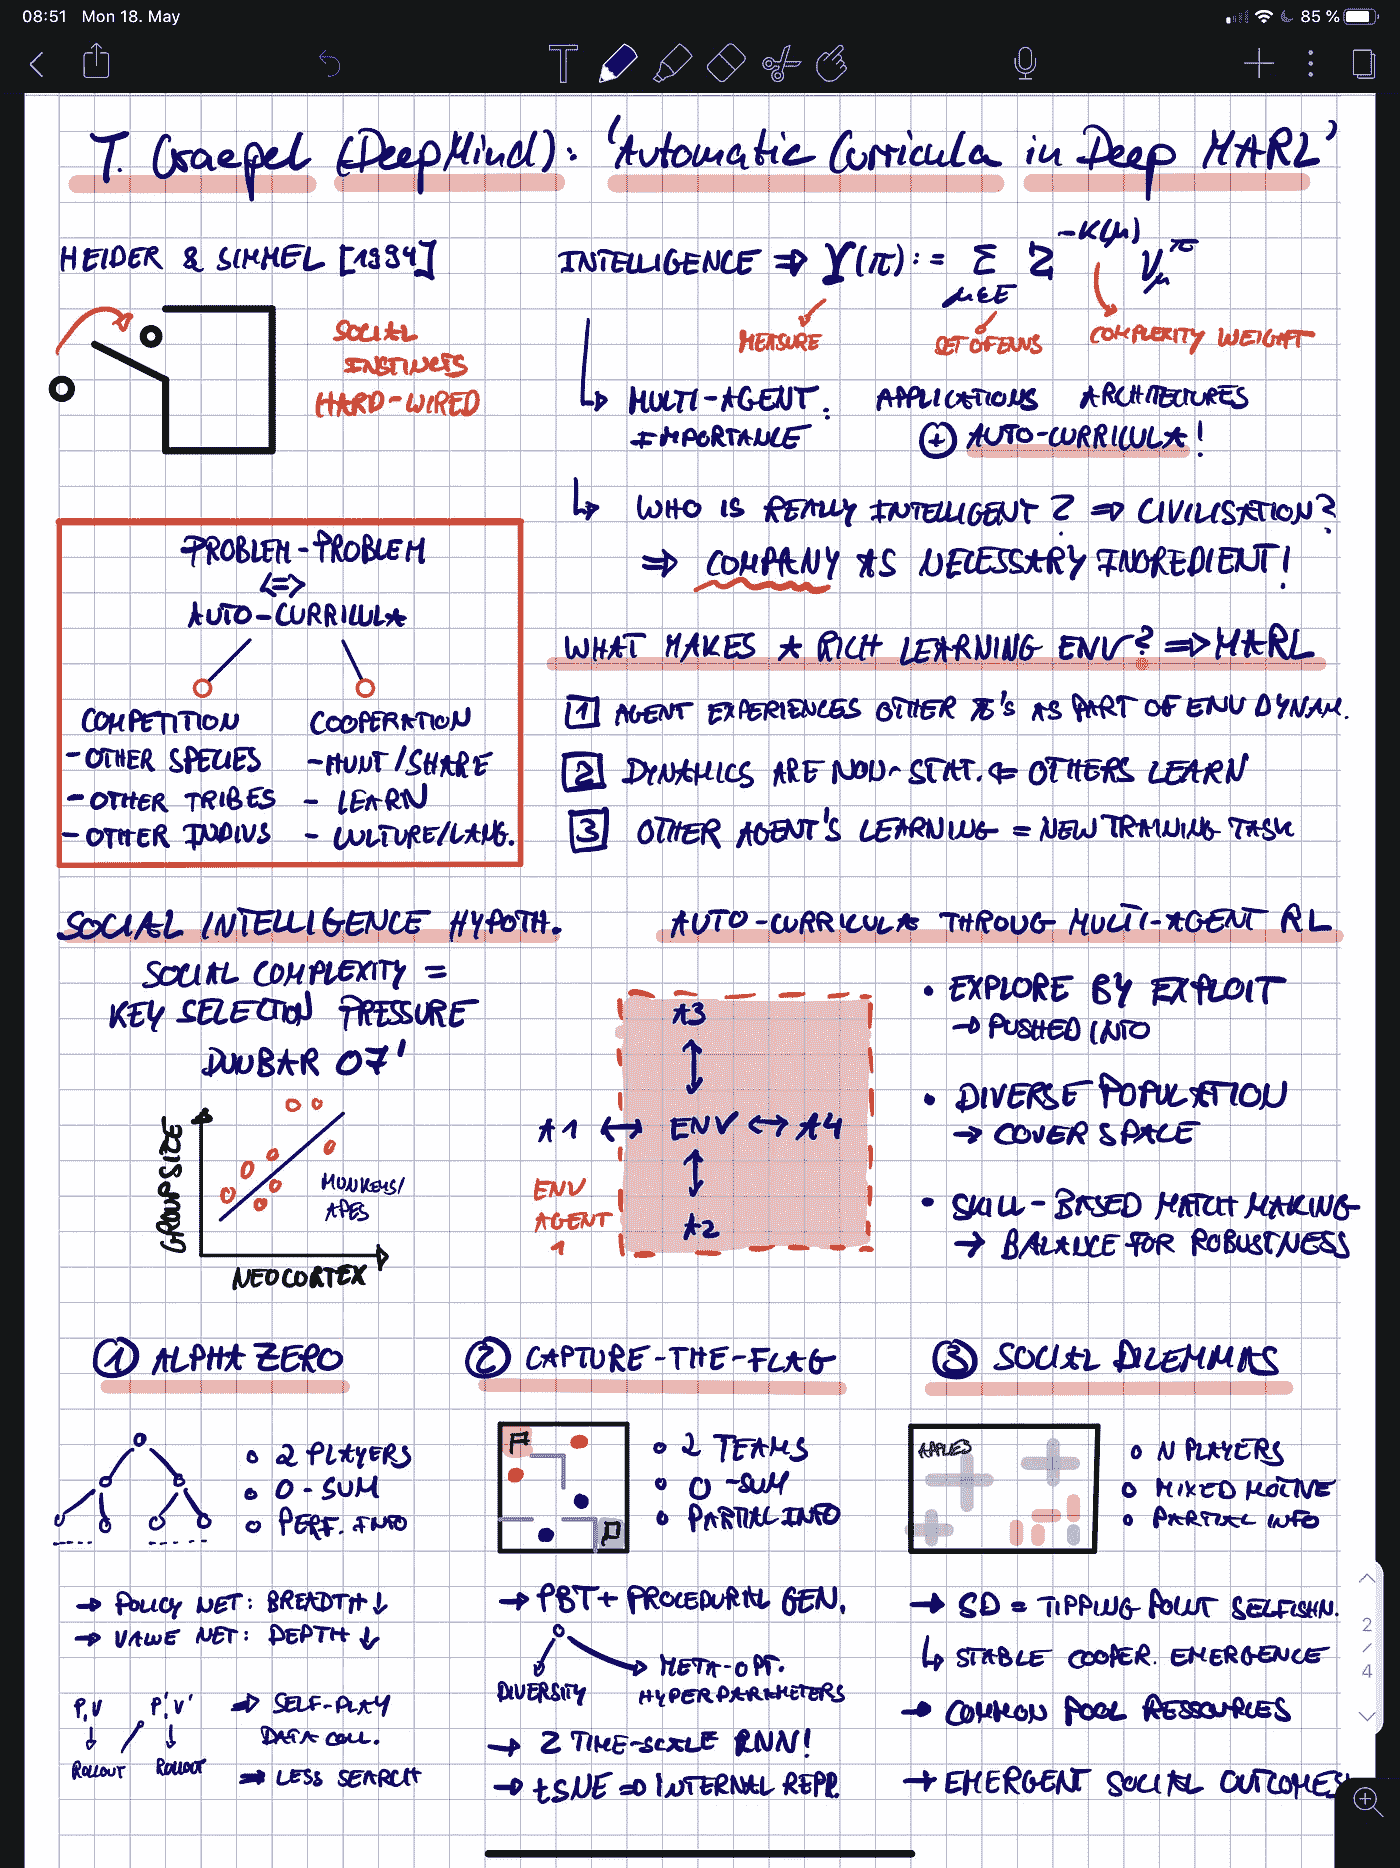 08:51 Mon 18. May
85 %
T. Graepel (DeepMind): 'Automatic Curricula in Deep MARL'
HEIDER & SIMMEL [1994]
SOCIAL
INSTINCTS
HARD-WIRED
INTELLIGENCE ⇒ Υ(π) := Σ 2^-K(μ) V_μ^π
μ∈E
MEASURE
SET OF ENVS
COMPLEXITY WEIGHT
↳ MULTI-AGENT : APPLICATIONS ARCHITECTURES
IMPORTANCE ⊕ AUTO-CURRICULA!
↳ WHO IS REALLY INTELLIGENT? ⇒ CIVILISATION?
⇒ COMPANY AS NECESSARY INGREDIENT!
PROBLEM-PROBLEM
⇔
AUTO-CURRICULA
COMPETITION
- OTHER SPECIES
- OTHER TRIBES
- OTHER INDIVS
COOPERATION
- HUNT/SHARE
- LEARN
- CULTURE/LANG.
WHAT MAKES A RICH LEARNING ENV? ⇒ MARL
1 AGENT EXPERIENCES OTHER π's AS PART OF ENV DYNAM.
2 DYNAMICS ARE NON-STAT. ⇐ OTHERS LEARN
3 OTHER AGENT'S LEARNING = NEW TRAINING TASK
SOCIAL INTELLIGENCE HYPOTH.
SOCIAL COMPLEXITY =
KEY SELECTION PRESSURE
DUNBAR 07'
GROUP SIZE
MONKEYS/
APES
NEOCORTEX
AUTO-CURRICULA THROUG MULTI-AGENT RL
A3
A1 ↔ ENV ↔ A4
A2
ENV
AGENT
1
• EXPLORE BY EXPLOIT
→ PUSHED INTO
• DIVERSE POPULATION
→ COVER SPACE
• SKILL-BASED MATCH MAKING
→ BALANCE FOR ROBUSTNESS
1 ALPHA ZERO
o 2 PLAYERS
o 0-SUM
o PERF. INFO
→ POLICY NET: BREADTH ↓
→ VALUE NET: DEPTH ↓
P,V P',V'
ROLLOUT ROLLOUT
⇒ SELF-PLAY
DATA COLL.
⇒ LESS SEARCH
2 CAPTURE-THE-FLAG
o 2 TEAMS
o 0-SUM
o PARTIAL INFO
→ PBT + PROCEDURAL GEN.
DIVERSITY
META-OPT.
HYPERPARAMETERS
→ 2 TIME-SCALE RNN!
→ tSNE ⇒ INTERNAL REPR.
3 SOCIAL DILEMMAS
APPLES
o N PLAYERS
o MIXED MOTIVE
o PARTIAL INFO
→ SD = TIPPING POINT SELFISHN.
↳ STABLE COOPER. EMERGENCE
→ COMMON POOL RESSOURCES
→ EMERGENT SOCIAL OUTCOMES
2
/
4